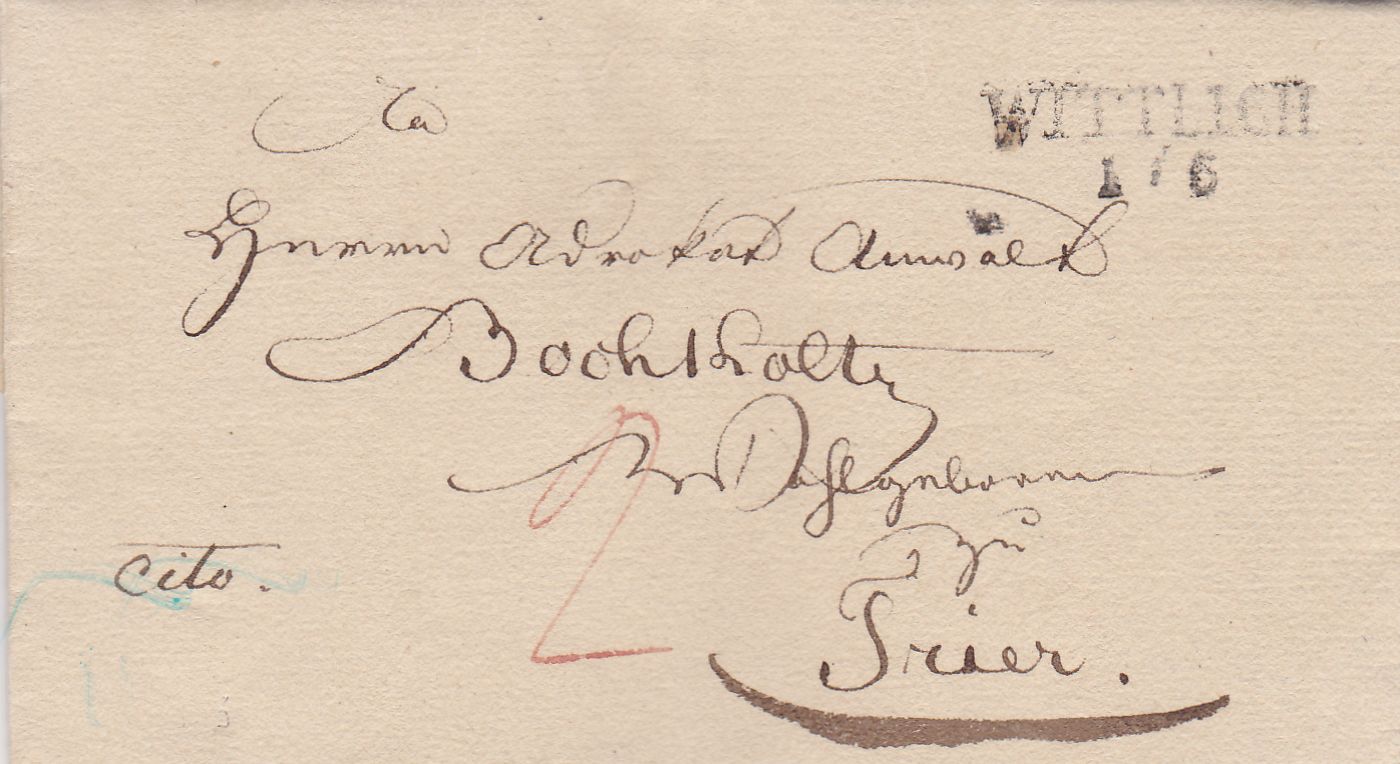 WITTLICH
1 / 6
An
Herrn Advokat Anwalt
Bochkoltz
Wohlgeboren
zu
cito.
2
Trier.